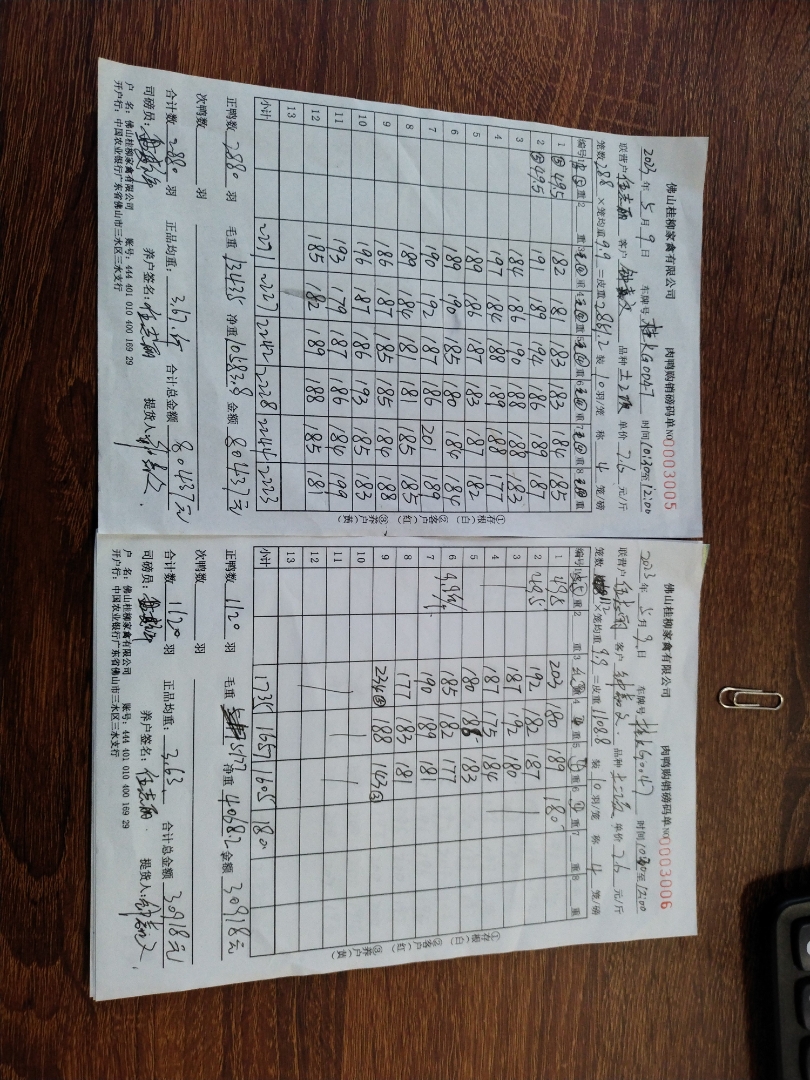 佛山桂柳家禽有限公司 肉鸭购销磅码单 NO 0003005
2023年 5月 9日 车牌号 桂KG0047 时间 10:30至12:00
联营户 任志丽 客户 钟嘉文 品种 单价 7.6 元/斤
笼数 288 ×笼均重 9.9 =皮重 2851.2 装 10 羽/笼 称 4 笼/磅
编号 1 重 2 重 3 重 4 重 5 重 6 重 7 重 8 重
1 ⑤49.5 182 181 183 183 184 185
2 ⑤49.5 191 189 194 186 189 187
3 184 186 190 188 188 183
4 197 184 188 189 188 177
5 189 186 187 183 187 182
6 189 190 185 180 184 184
7 190 192 187 186 201 189
8 189 184 181 181 185 185
9 186 187 185 185 184 188
10 196 187 186 193 185 183
11 193 179 187 186 184 199
12 185 182 189 188 185 181
13
小计 2271 2227 2242 2228 2244 2223
正鸭数 2880 羽 毛重 13435 净重 10583.8 金额 80437元
次鸭数 羽
合计数 2880 羽 正品均重: 3.67斤 合计总金额 80437元
司磅员: 养户签名: 任志丽 提货人: 钟嘉文
户 名: 佛山桂柳家禽有限公司 账号: 444 401 010 400 169 29
开户行: 中国农业银行广东省佛山市三水区三水支行
①存根(白) ②客户(红) ③养户(黄)
佛山桂柳家禽有限公司 肉鸭购销磅码单 NO 0003006
2023年 5月 9日 车牌号 桂KG0047 时间 10:30至12:00
联营户 任志丽 客户 钟嘉文 品种 单价 7.6 元/斤
笼数 112 ×笼均重 9.9 =皮重 1108.8 装 10 羽/笼 称 4 笼/磅
编号 1 重 2 重 3 重 4 重 5 重 6 重 7 重 8 重
1 49.5 203 180 189 180
2 49.5 192 182 187
3 187 192 180
4 187 175 184
5 180 188 183
6 9.9斤/ 185 182 177
7 190 189 181
8 177 183 181
9 234⑤ 188 143③
10
11
12
13
小计 1735 1657 1605 180
正鸭数 1120 羽 毛重 5177 净重 4068.2 金额 30918元
次鸭数 羽
合计数 1120 羽 正品均重: 3.63 合计总金额 30918元
司磅员: 养户签名: 任志丽 提货人: 钟嘉文
户 名: 佛山桂柳家禽有限公司 账号: 444 401 010 400 169 29
开户行: 中国农业银行广东省佛山市三水区三水支行
①存根(白) ②客户(红) ③养户(黄)